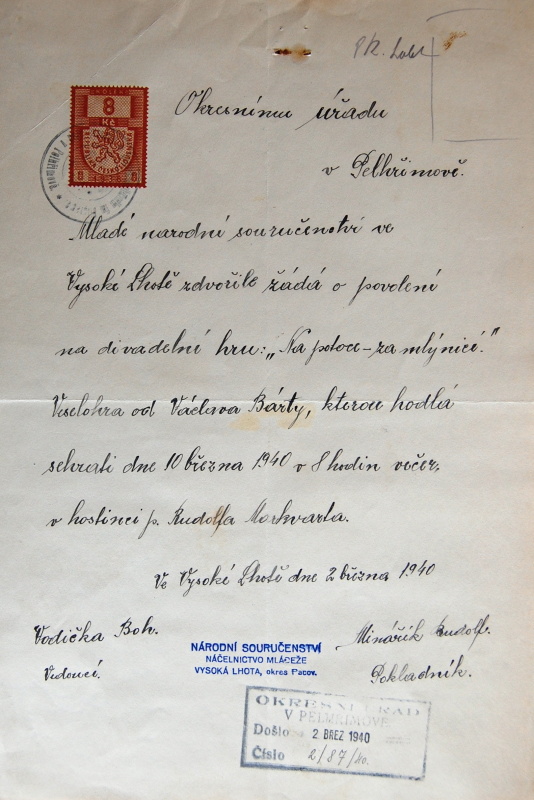 8
Kč
8 8
Okresnímu úřadu
v Pelhřimově.
Mladé národní souručenství ve
Vysoké Lhotě zdvořile žádá o povolení
na divadelní hru: „Na potoce - za mlýnicí."
Veselohra od Václava Bárty, kterou hodlá
sehrati dne 10 března 1940 v 8 hodin večer,
v hostinci p. Rudolfa Markvarta.
Ve Vysoké Lhotě dne 2 března 1940
Vodička Boh. Minářík Rudolf.
Vedoucí. Pokladník.
NÁRODNÍ SOURUČENSTVÍ
NÁČELNICTVO MLÁDEŽE
VYSOKÁ LHOTA, okres Pacov.
OKRESNÍ ÚŘAD
V PELHŘIMOVĚ
Došlo 2 BŘEZ 1940
Číslo 2/87/40.